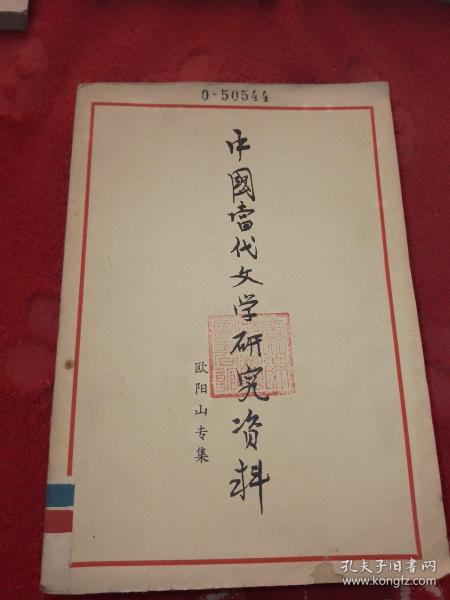 0-50544
中國當代文学研究资料
欧阳山专集
孔夫子旧书网
www.kongfz.com